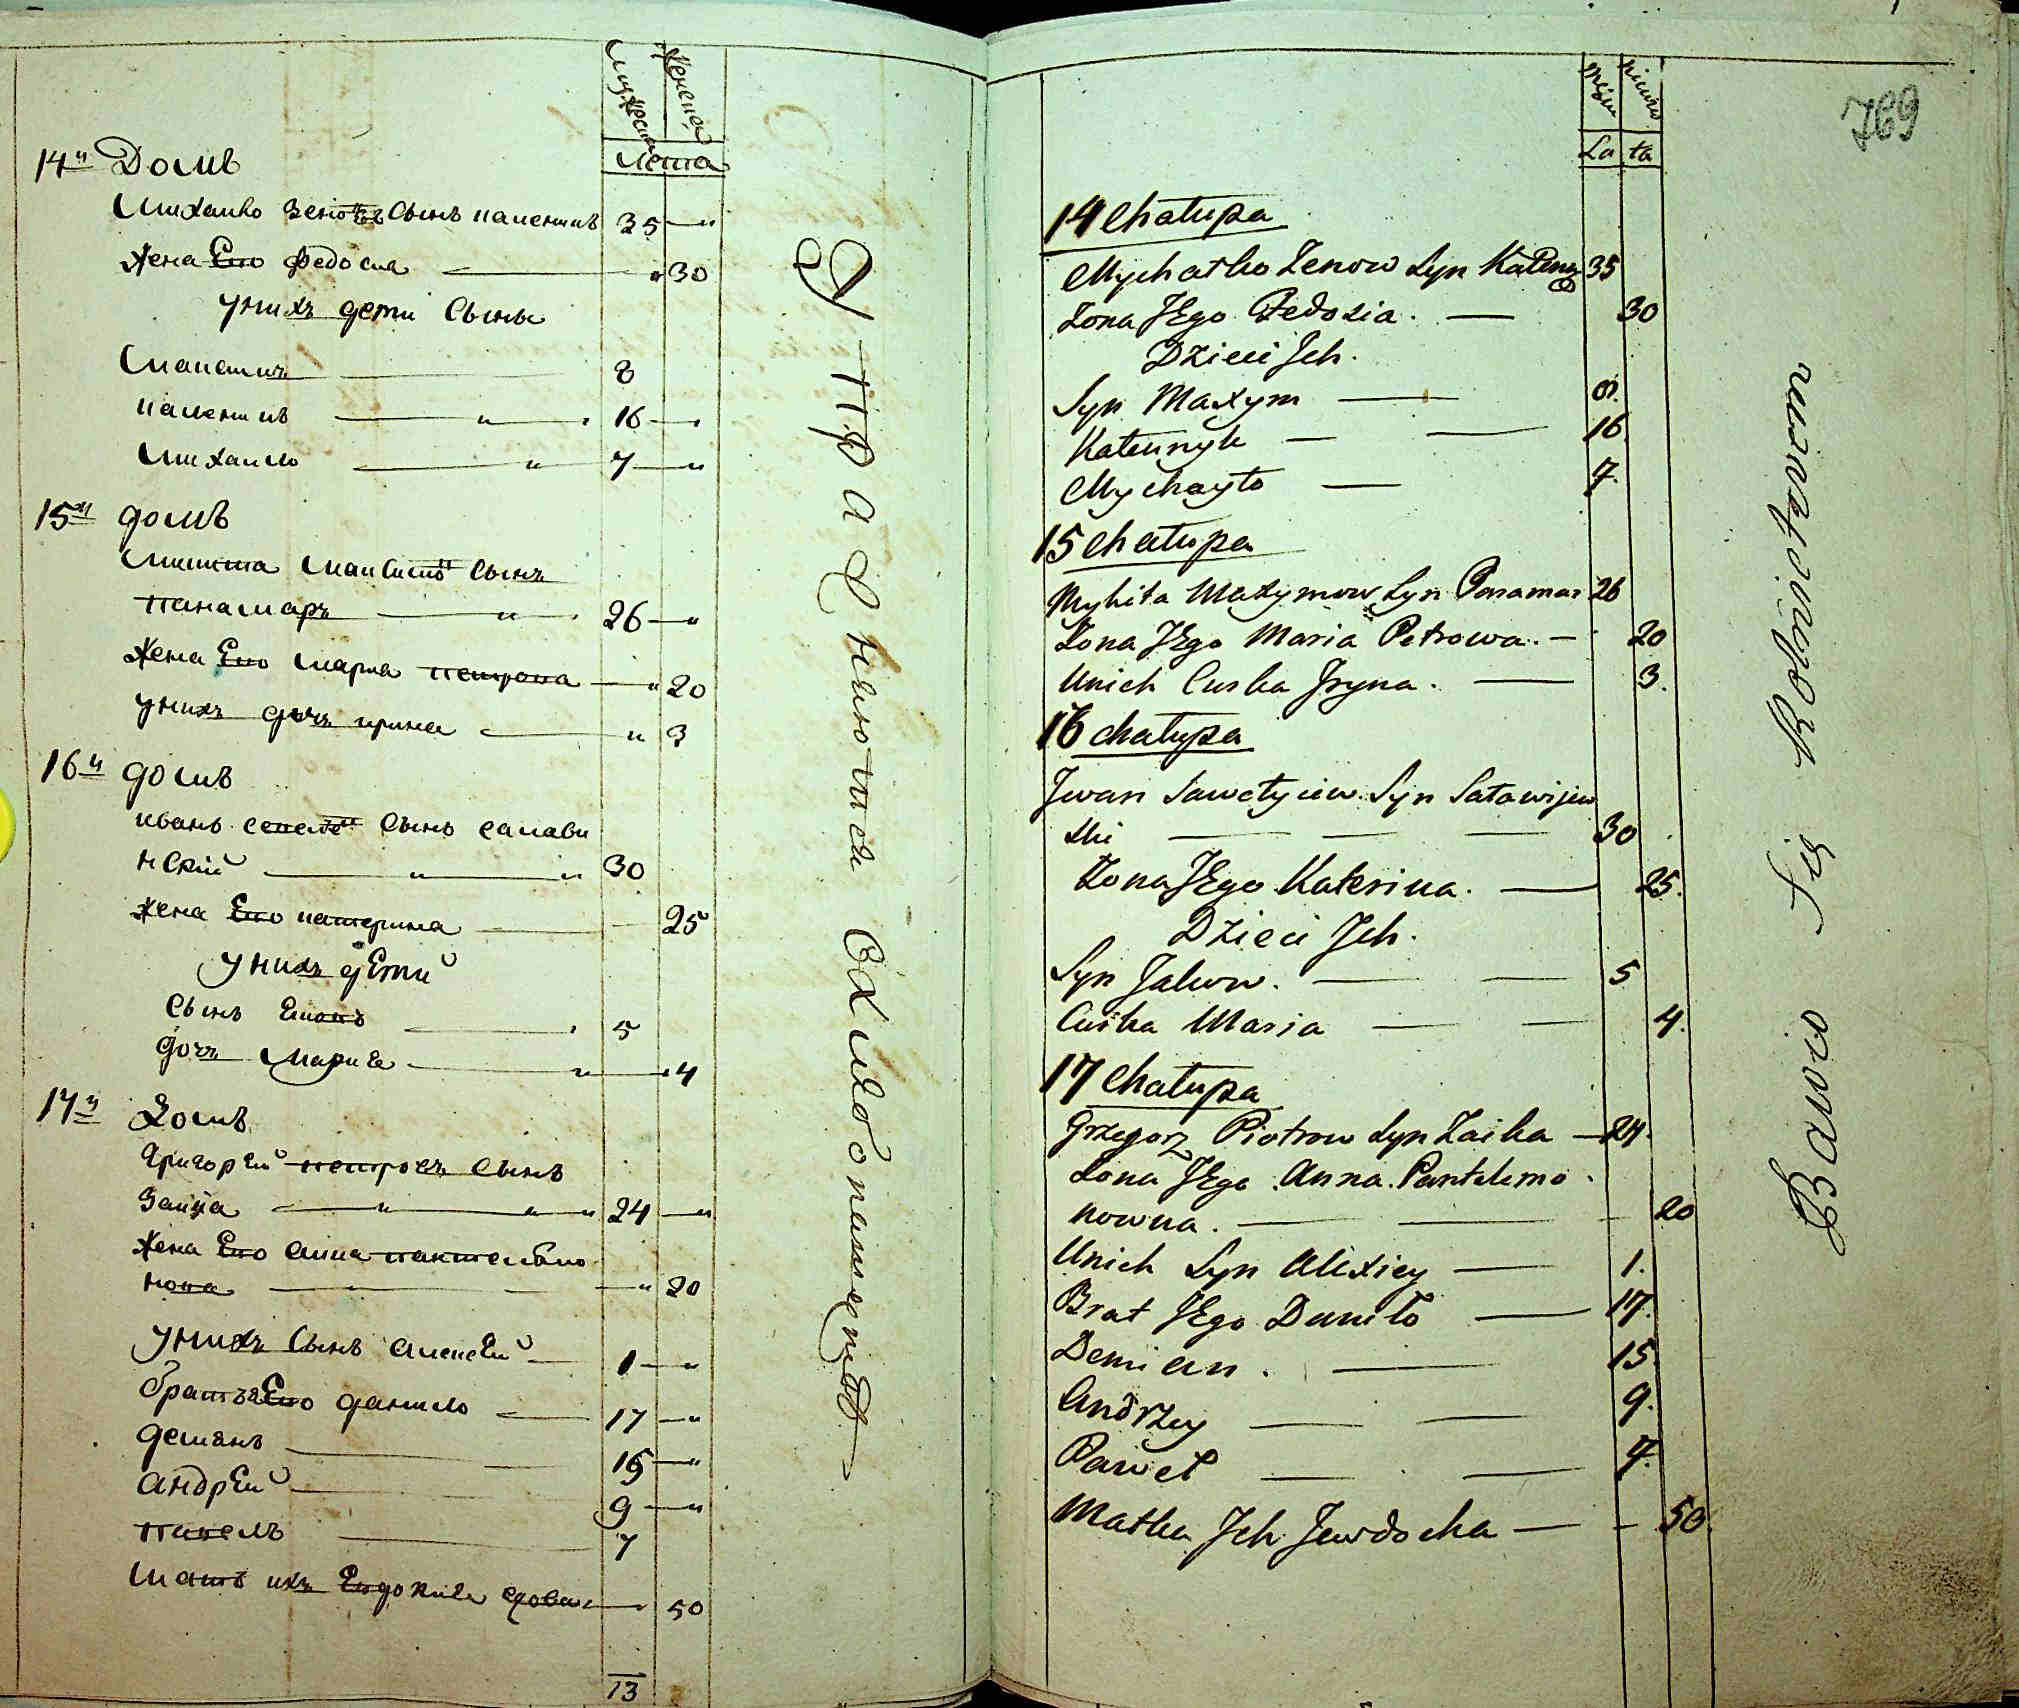 мужеска женска
лета
14й Домъ
Михайло Зеновъ Сынъ каленикъ 35 — „
Жена Его Федосиа — „ 30
у нихъ дети Сыны
Максимъ — 8
каленикъ — „ — 16 —
Михайло — „ 7 — „
15й домъ
Микита Максимов Сынъ
панамаръ — „ — 26 — „
Жена Его Мариа петрова — „ 20
у нихъ дочь ирина — „ 3
16й домъ
иванъ Савелев Сынъ салави
нский — „ — „ 30
жена Его катерина — 25
у нихъ дЕти
Сынъ Еково — 5
дочь Мариа — „ — 4
17й Домъ
Григорей петровъ Сынъ
Заика — „ — „ 24 — „
Жена Его анна пантелемо
нова — „ 20
у нихъ Сынъ алексЕй — 1 — „
братья Его данило — 17 — „
демянъ — 15 — „
андрЕй — 9 — „
павелъ — 7
мать ихъ Евдокия вдова — 50
13
Упражняются в хлебопашестве
769
męzów kobiéw
La ta
14 Chałupa
Mychałko Zenow Syn Kaleny 35
Żona JEgo Fedosia. — 30
Dzieci Jch.
Syn Maxym — 8.
Kalennyk — — 16
Mychayło — 7.
15 chałupa
Mykita Maxymow Syn Panamar 26
Żona JEgo Maria Petrowa. — 20
Unich Curka Jryna. — 3.
16 chałupa
Jwan Sawełyiew Syn Saławijew
ski — — — 30
Żona JEgo Katerina. — 25.
Dzieci Jch.
Syn Jakow. — — 5
Curka Maria — — 4.
17 Chałupa
Grzegorz Piotrow Syn Zaika — 24.
Żona JEgo Anna Pantelemo
nowna. — — — 20
Unich Syn Alexiey — 1.
Brat JEgo Daniło — 17.
Demian. — 15
Andrzey — — 9.
Paweł — — 7.
Matka Jch Jewdocha — — 50
Bawio Się Rolnictwem